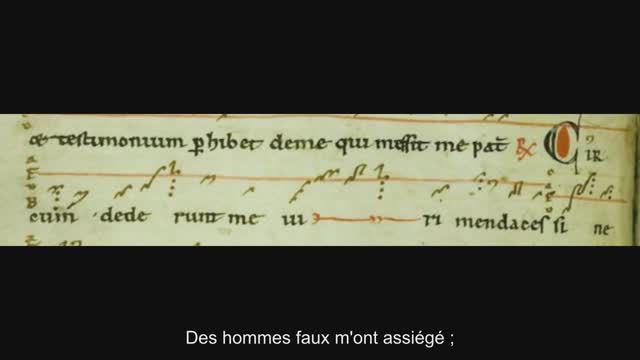 testimonium perhibet de me qui misit me pat̄ R̸ CIR
cum dede runt me ui ri mendaces si ne
Des hommes faux m'ont assiégé ;